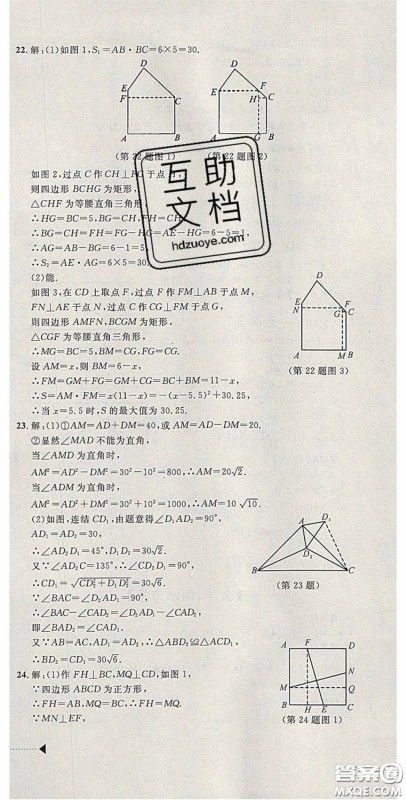 22. 解:(1)如图 1,S₁=AB·BC=6×5=30.
D
E
F
C
A
B
D
E
F
H
C
A
G
B
(第 22 题图 1)
(第 22 题图 2)
如图 2,过点 C 作 CH⊥
则四边形 BCHG 为矩形,
△CHF 为等腰直角三角形
∴HG=BC=5,BG=CH,
∴BG=CH=FH=AE-HG=6-5=1,
∴AG=AB-BG=6-1=5,
∴S₂=AE·AG=6×5=30.
(2)能.
如图 3,在 CD 上取点 F,过点 F 作 FM⊥AB 于点 M,
FN⊥AE 于点 N,过点 C 作 CG⊥FM 于点 G,
则四边形 AMFN,BCGM 为矩形,
△CGF 为等腰直角三角形,
∴MG=BC=5,BM=CG,FG=CG.
设 AM=x,则 BM=6-x,
∴FM=GM+FG=GM+CG=BC+BM=11-x,
∴S=AM·FM=x(11-x)=-(x-5.5)²+30.25,
∴当 x=5.5 时,S 的最大值为 30.25.
D
E
N
F
G
C
A
M
B
(第 22 题图 3)
23. 解:(1)①AM=AD+DM=40,或 AM=AD-DM=20.
②显然∠MAD 不能为直角,
当∠AMD 为直角时,
AM²=AD²-DM²=30²-10²=800,∴AM=20√2.
当∠ADM 为直角时,
AM²=AD²+DM²=30²+10²=1000,∴AM=10√10.
(2)如图,连结 CD₁,由题意得∠D₁AD₂=90°,
AD₁=AD₂=30,
∴∠AD₂D₁=45°,D₁D₂=30√2.
又∵∠AD₂C=135°,∴∠CD₂D₁=90°,
∴CD₁=√CD₂²+D₁D₂²=30√6.
∵∠BAC=∠D₂AD₁=90°,
∴∠BAC-∠CAD₂=∠D₂AD₁-∠CAD₂,
即∠BAD₂=∠CAD₁.
又∵AB=AC,AD₂=AD₁,∴△ABD₂≌△ACD₁,
∴BD₂=CD₁=30√6.
A
D₁
D₂
B
C
(第 23 题)
24. 解:(1)作 FH⊥BC,MQ⊥CD,如图 1,
∵四边形 ABCD 为正方形,
∴FH=AB,MQ=BC,∴FH=MQ.
∵MN⊥EF,
A
F
D
N
M
Q
B
H
E
C
(第 24 题图 1)
互助
文档
hdzuoye.com
答案圈
MXQE.COM